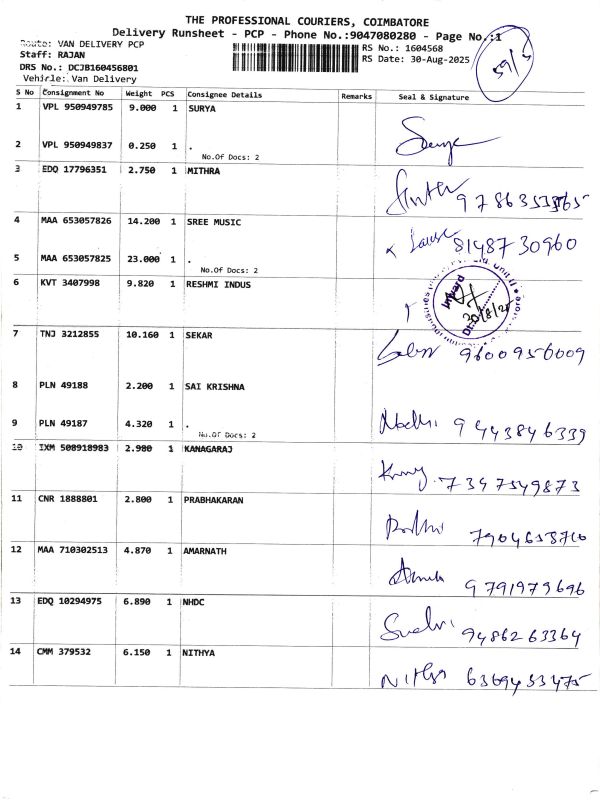 THE PROFESSIONAL COURIERS, COIMBATORE
Delivery Runsheet - PCP - Phone No.:9047080280 - Page No.:1
Route: VAN DELIVERY PCP
RS No.: 1604568
Staff: RAJAN
RS Date: 30-Aug-2025
59/5
DRS No.: DCJB160456801
Vehicle: Van Delivery
S No Consignment No Weight PCS Consignee Details Remarks Seal & Signature
1 VPL 950949785 9.000 1 SURYA
2 VPL 950949837 0.250 1 .
No.Of Docs: 2
3 EDQ 17796351 2.750 1 MITHRA
4 MAA 653057826 14.200 1 SREE MUSIC
81487 30960
5 MAA 653057825 23.000 1 .
No.Of Docs: 2
6 KVT 3407998 9.820 1 RESHMI INDUS
Inward
30/8/25
7 TNJ 3212855 10.160 1 SEKAR
9600956009
8 PLN 49188 2.200 1 SAI KRISHNA
9 PLN 49187 4.320 1 .
9443846339
No.Of Docs: 2
10 IXM 508918983 2.980 1 KANAGARAJ
7347549873
11 CNR 1888801 2.800 1 PRABHAKARAN
12 MAA 710302513 4.870 1 AMARNATH
9791979696
13 EDQ 10294975 6.890 1 NHDC
9486263364
14 CMM 379532 6.150 1 NITHYA
6369453475